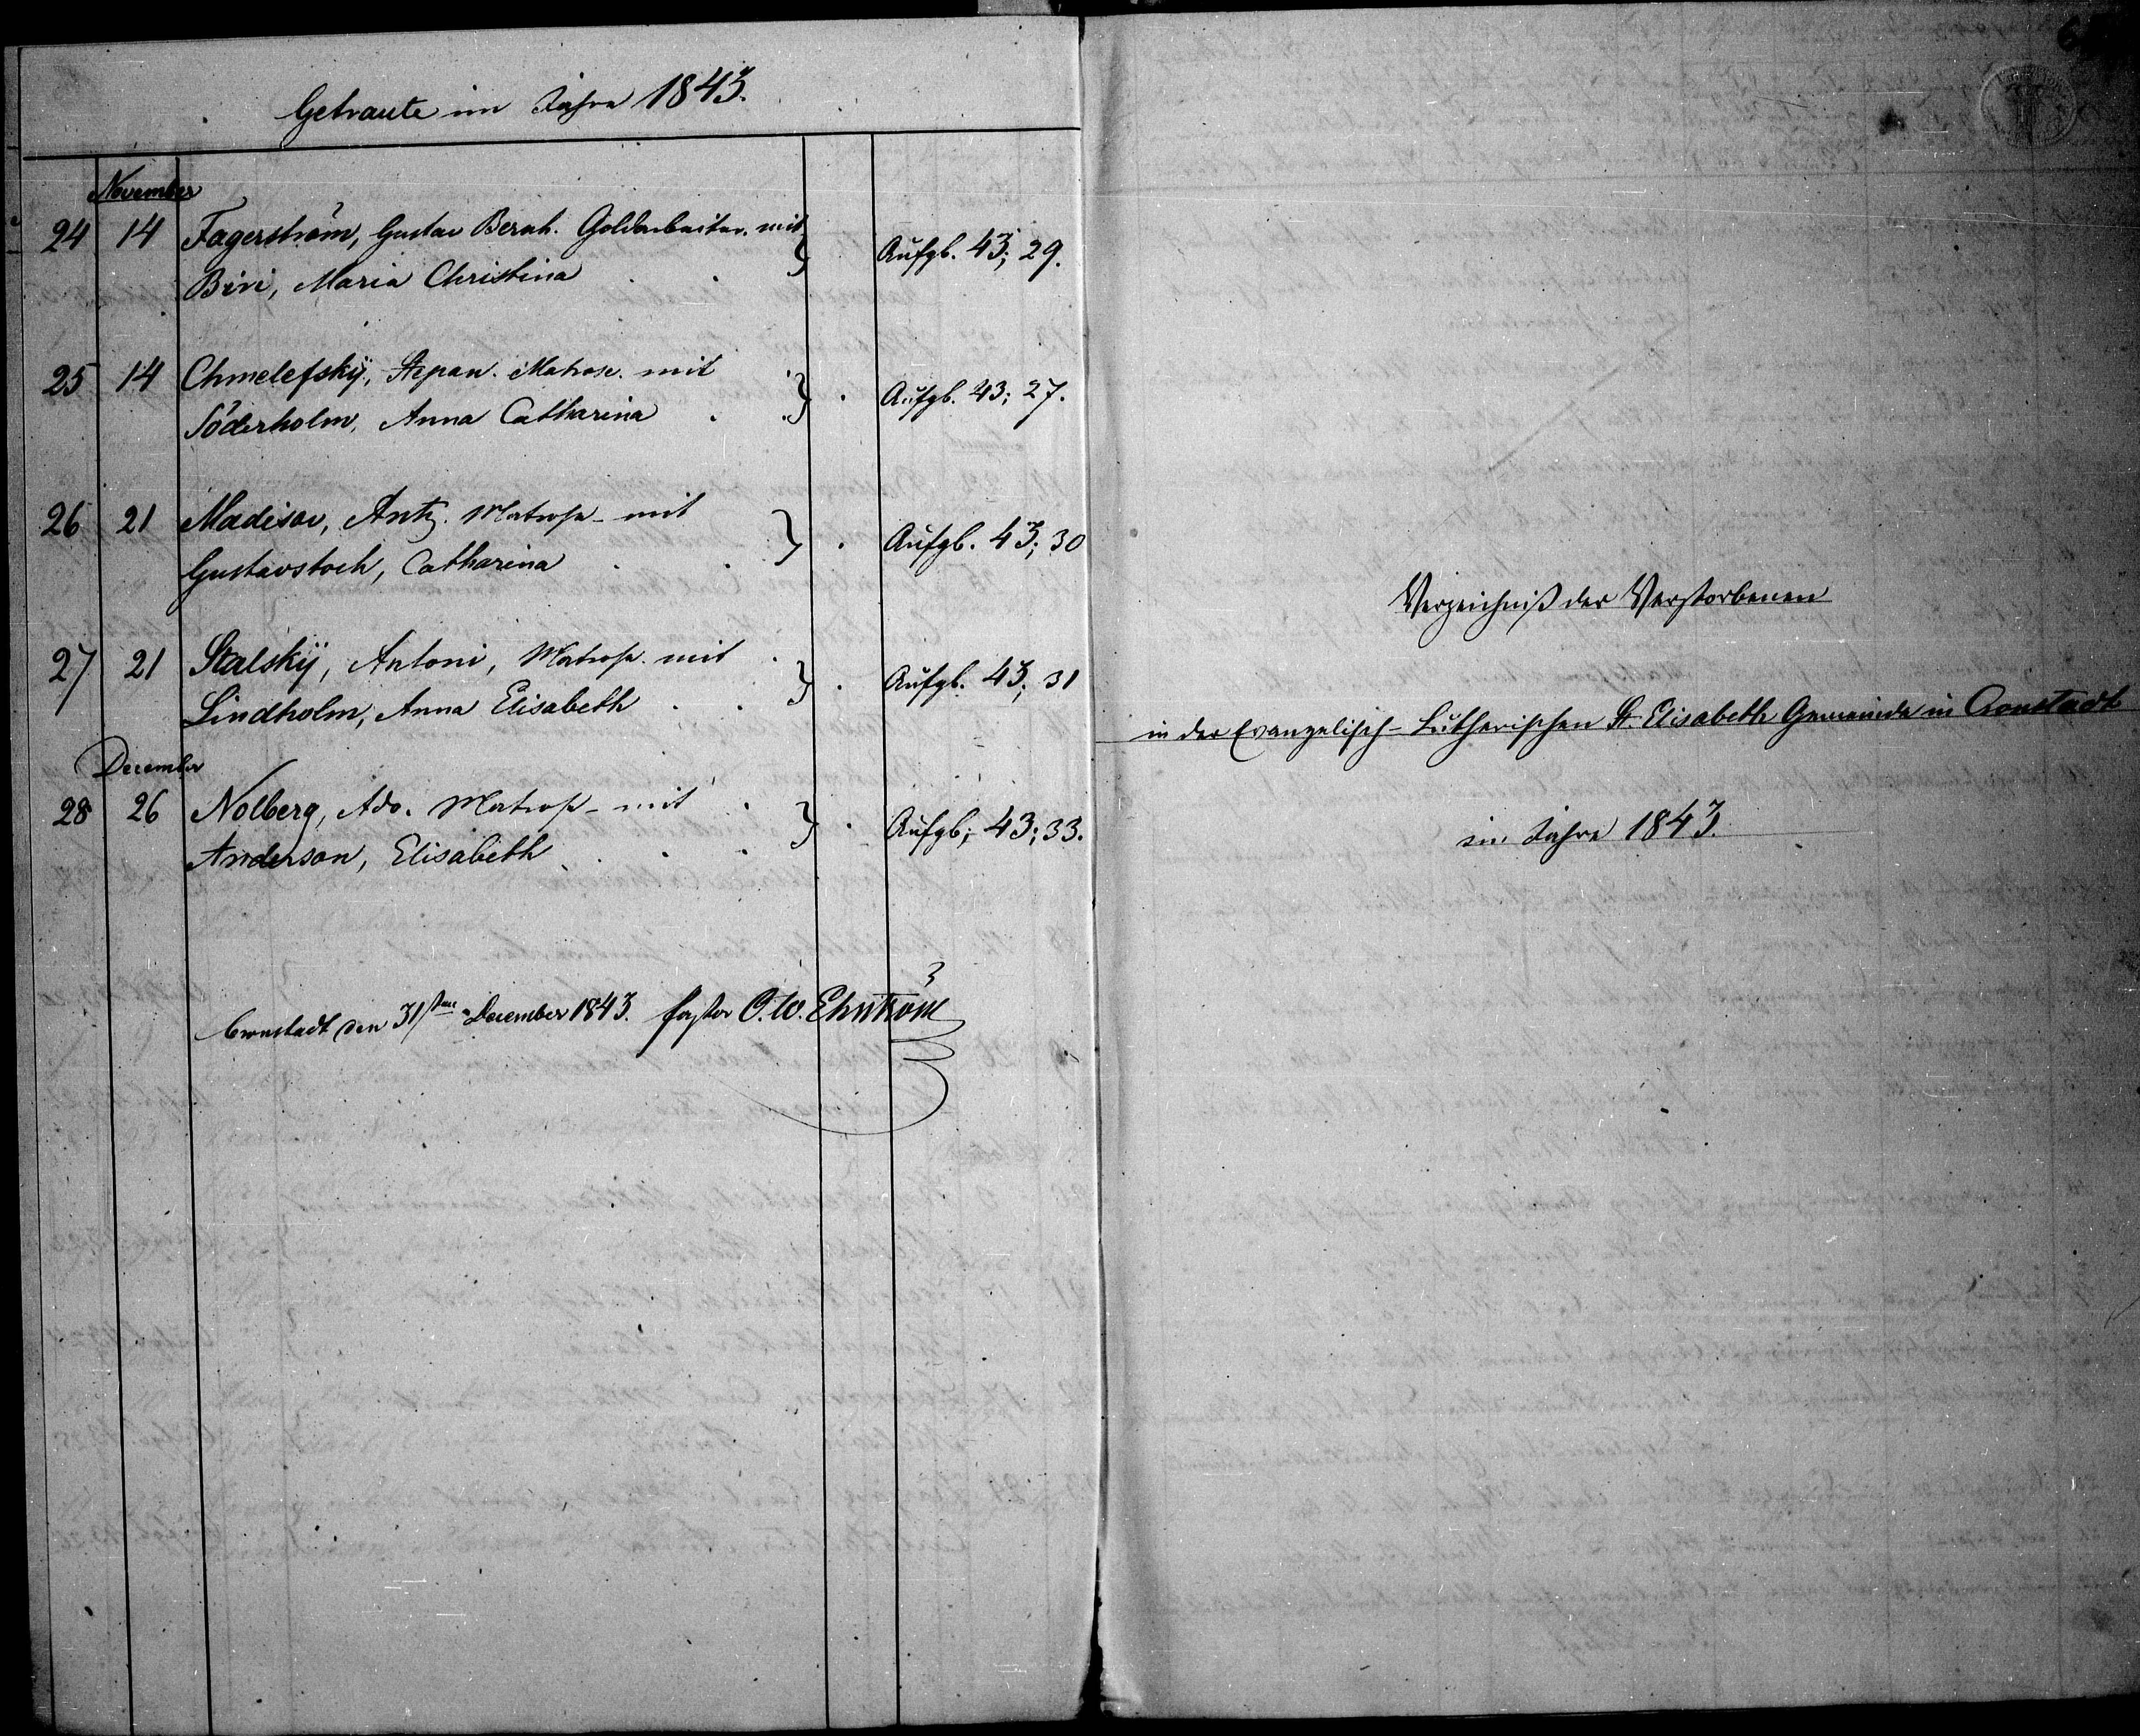 Getraute im Jahre 1843.
November
24 14 Fagerström, Gustav Bernh. Goldarbeiter. mit
Biri, Maria Christina . . Aufgb. 43; 29.
25 14 Chmelefskÿ, Stepan. Matrose. mit
Söderholm, Anna Catharina . . Aufgb. 43; 27.
26 21 Madisov, Antz. Matrose mit
Gustavstoch, Catharina . . Aufgb. 43; 30
27 21 Stalskÿ, Antoni, Matrose. mit
Lindholm, Anna Elisabeth . . Aufgb. 43; 31
December
28 26 Nolberg, Ado. Matrose mit
Anderson, Elisabeth . . . Aufgb; 43; 33.
Cronstadt den 31sten December 1843. Pastor C. W. Ehrström
Verzeichniß der Verstorbenen
in der Evangelisch-Lutherischen St. Elisabeth Gemeinde in Cronstadt
im Jahre 1843.